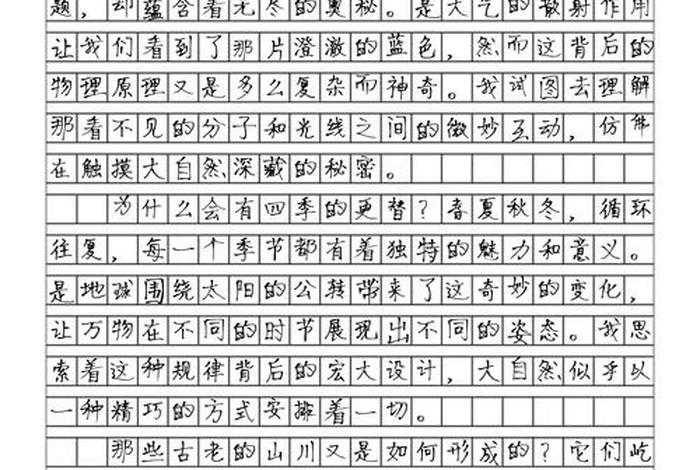 题，却蕴含着无尽的奥秘。是大气的散射作用
让我们看到了那片澄澈的蓝色，然而这背后的
物理原理又是多么复杂而神奇。我试图去理解
那看不见的分子和光线之间的微妙互动，仿佛
在触摸大自然深藏的秘密。
为什么会有四季的更替？春夏秋冬，循环
往复，每一个季节都有着独特的魅力和意义。
是地球围绕太阳的公转带来了这奇妙的变化，
让万物在不同的时节展现出不同的姿态。我思
索着这种规律背后的宏大设计，大自然似乎以
一种精巧的方式安排着一切。
那些古老的山川又是如何形成的？它们屹